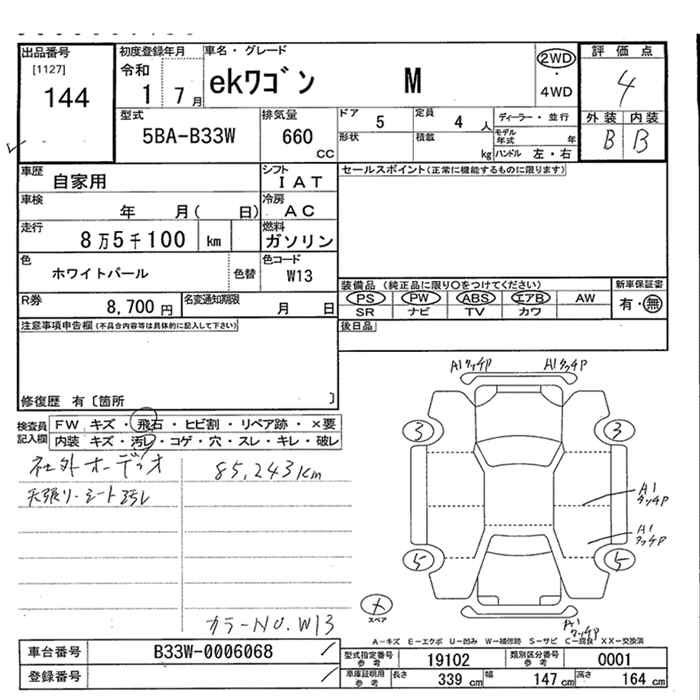 出品番号
[1127]
144
初度登録年月
令和
1 7月
車名・グレード
ekワゴン M
2WD
・
4WD
評価点
4
外装 内装
B B
型式
5BA-B33W
排気量
660
CC
ドア 5
形状
定員 4人
積載 kg
ディーラー・並行
モデル年式 年
ハンドル 左・右
車歴
自家用
シフト
IAT
車検
年 月( 日)
冷房
AC
走行
8万5千100 km
燃料
ガソリン
色
ホワイトパール
色替
色コード
W13
R券
8,700円
名変通知期限
月 日
セールスポイント(正常に機能するものに限ります)
装備品 (純正品に限り○をつけてください)
PS PW ABS エアB AW
SR ナビ TV カワ
新車保証書
有・無
後日品
注意事項申告欄(不具合内容等は具体的に記入して下さい)
修復歴 有〔箇所 〕
検査員
記入欄
FW キズ・飛石・ヒビ割・リペア跡・×要
内装 キズ・汚レ・コゲ・穴・スレ・キレ・破レ
社外オーディオ
85,243km
天張り・シート汚レ
カラーNO. W13
A1タッチP A1タッチP
3 3
A1
タッチP
A1
タッチP
5 5
スペア
A1
タッチP
A-キズ E-エクボ U-凹み W-補修跡 S-サビ C-腐食 XX-交換済
車台番号
B33W-0006068
登録番号
型式指定番号
参考
19102
類別区分番号
参考
0001
車庫証明用
参考
長さ 339 cm 幅 147 cm 高さ 164 cm